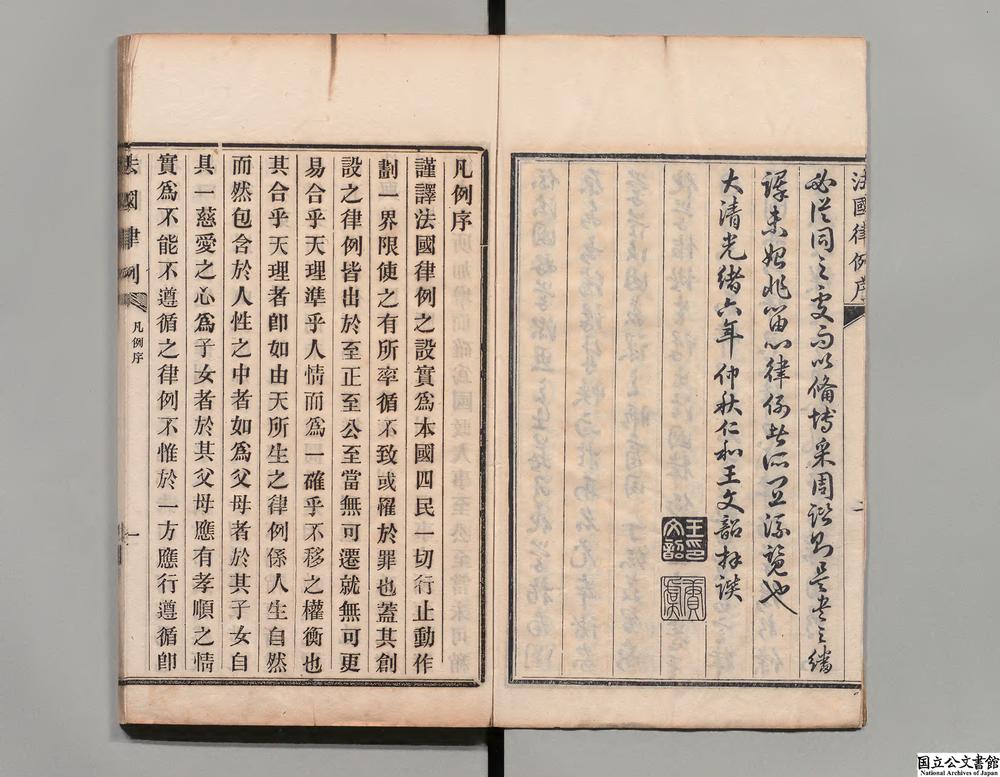 法國律例序
必從同之處而以備博采周諮則是書之繙
譯未始非留心律例者所宜流覽也
大清光緒六年仲秋仁和王文韶拜譔
王印文韶
二
凡例序
謹譯法國律例之設實爲本國四民一切行止動作
劃一界限使之有所率循不致或罹於罪也蓋其創
設之律例皆出於至正至公至當無可遷就無可更
易合乎天理準乎人情而爲一確乎不移之權衡也
其合乎天理者卽如由天所生之律例係人生自然
而然包含於人性之中者如爲父母者於其子女自
具一慈愛之心爲子女者於其父母應有孝順之情
實爲不能不遵循之律例不惟於一方應行遵循卽
法國律例
凡例序
一
国立公文書館
National Archives of Japan